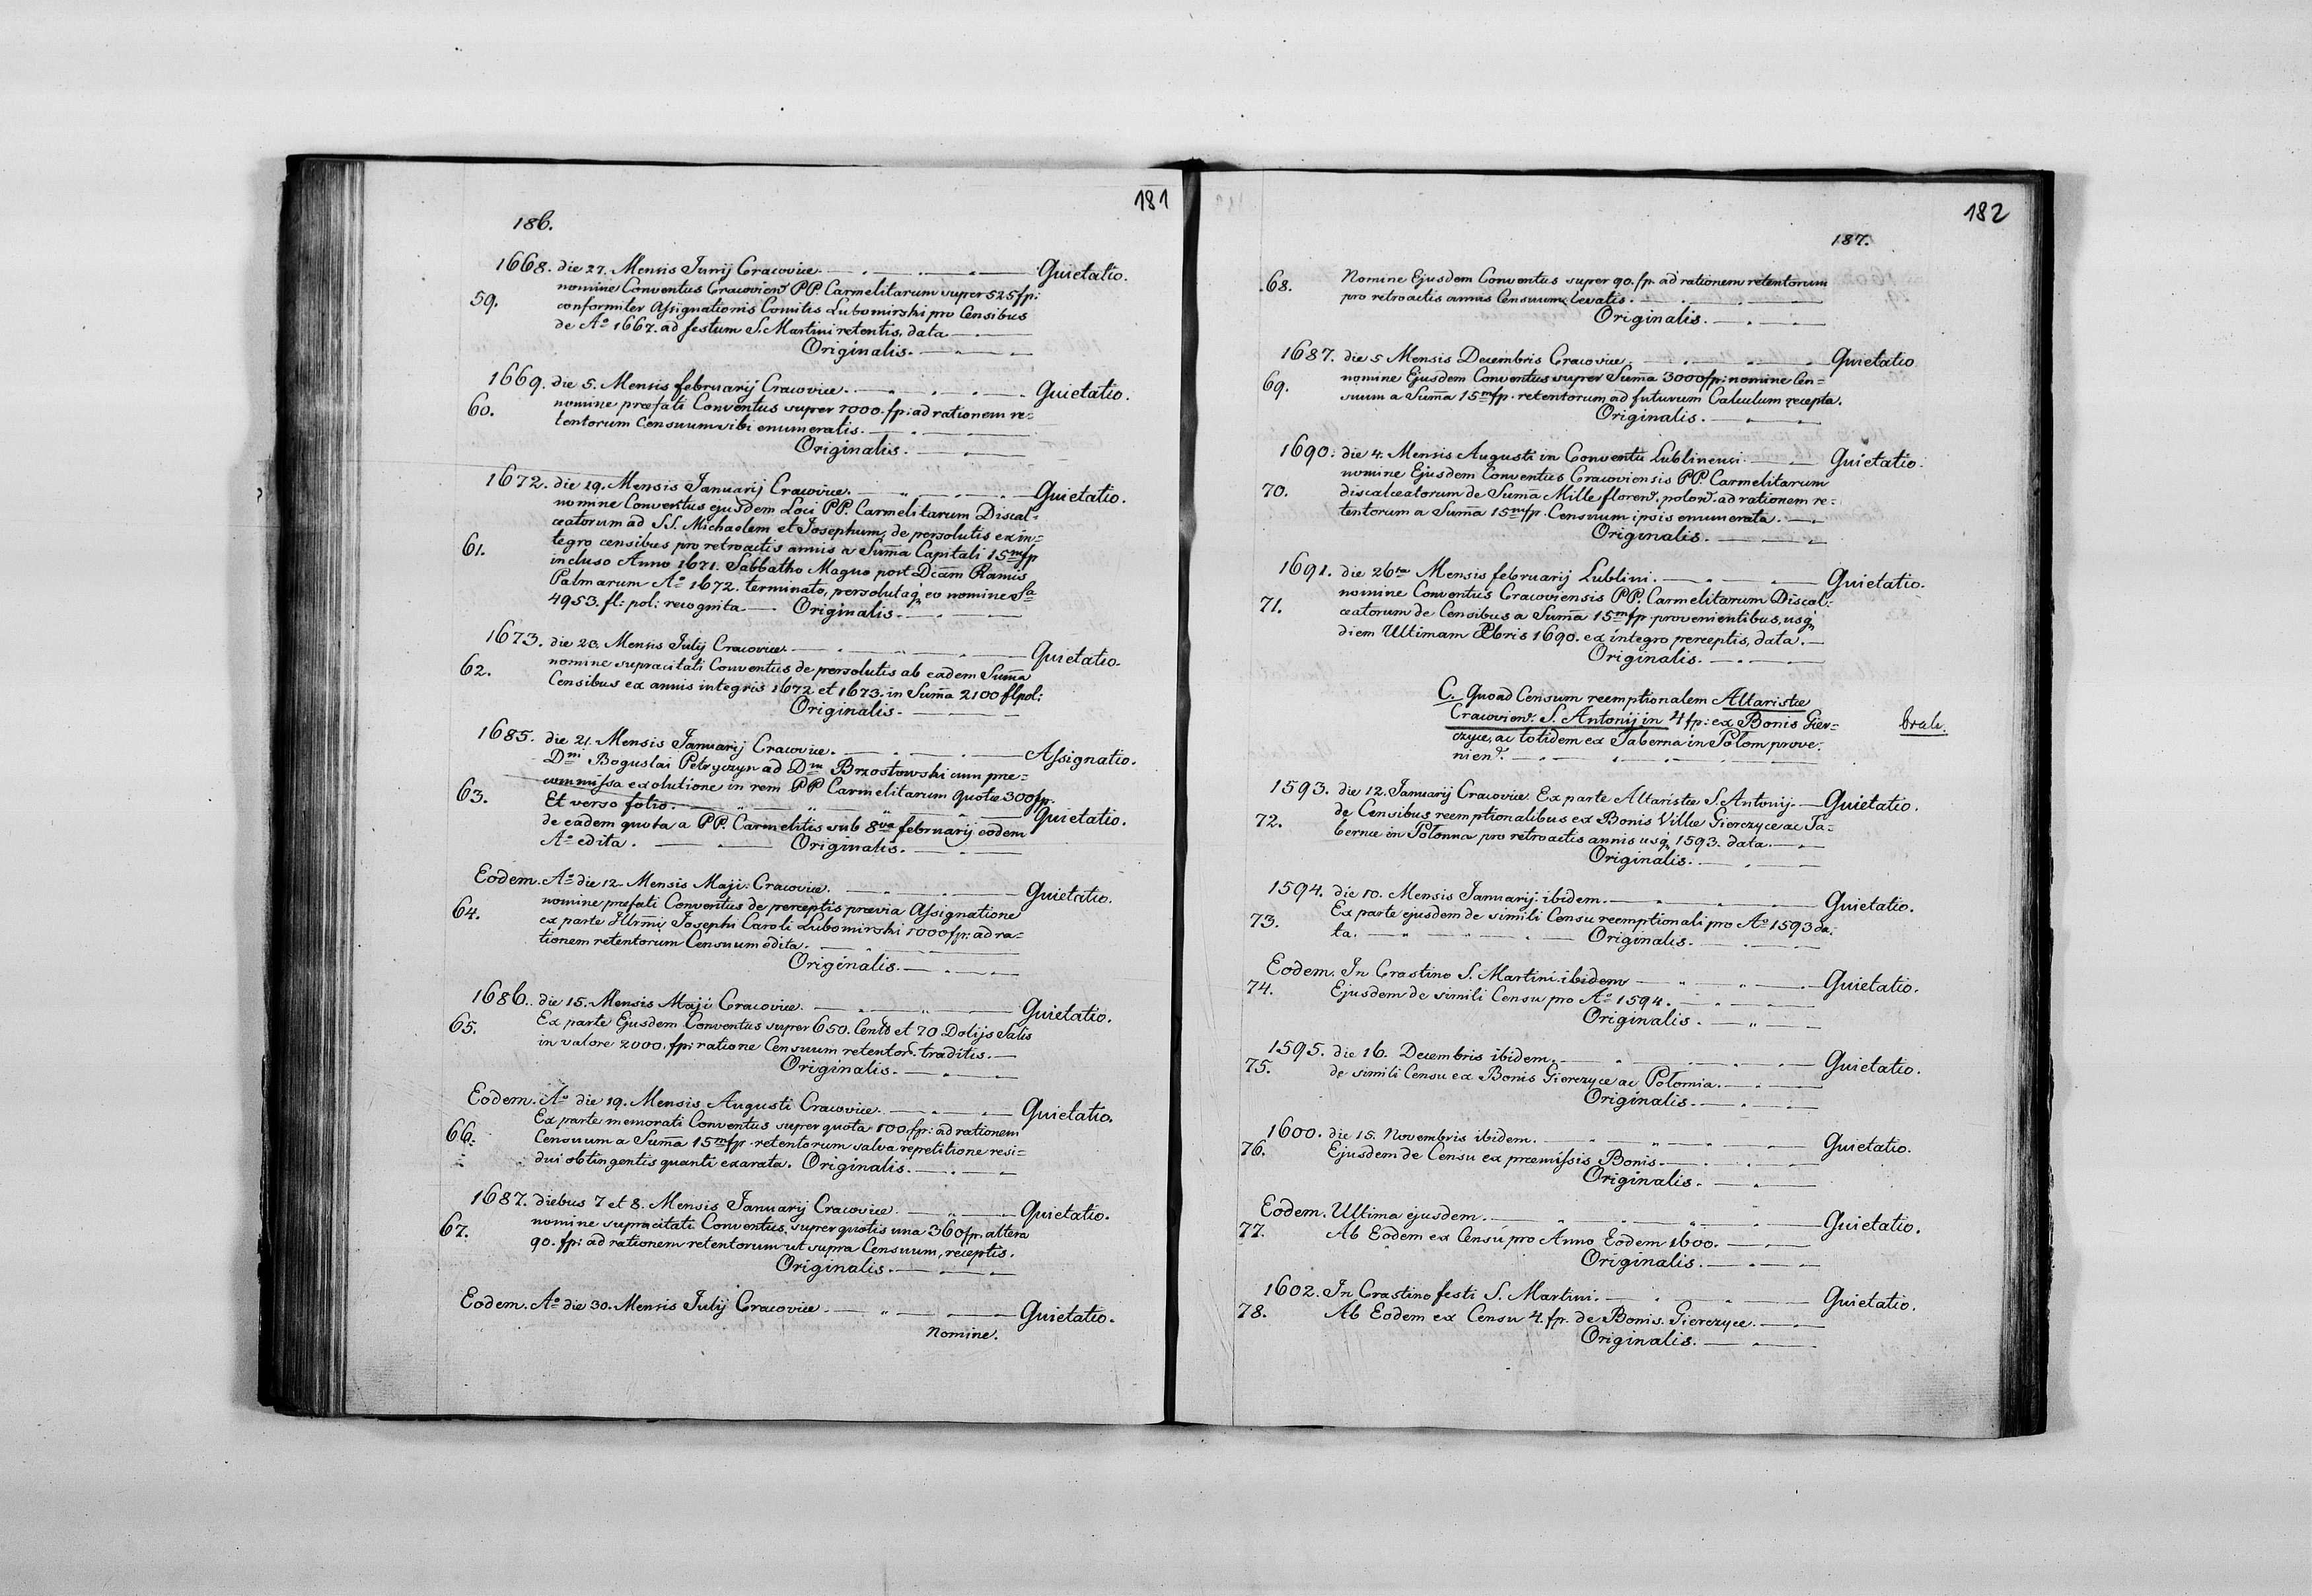 181
186.
1668. die 27. Mensis Junij Cracoviæ. Quietatio.
nomine Conventus Cracovien. PP. Carmelitarum super 525 fp:
59. conformiter Assignationis Comitis Lubomirski pro Censibus
de Aº 1667. ad festum S. Martini retentis, data
Originalis.
1669. die 5. Mensis februarij Cracoviæ. Quietatio.
60. nomine præfati Conventus super 1000. fp: ad rationem re=
tentorum Censuum sibi enumeratis.
Originalis.
1672. die 19. Mensis Januarij Cracoviæ. Quietatio.
nomine Conventus ejusdem Loci PP. Carmelitarum Discal=
ceatorum ad S.S. Michaelem et Josephum, de persolutis ex in=
61. tegro censibus pro retroactis annis a Sum̄a Capitali 15 m fp
incluso Anno 1671. Sabbatho Magno post Dcām Ramis
Palmarum Aº 1672. terminato, persolutaq, eo nomine Sa
4953. fl: pol: recognita Originalis.
1673. die 23. Mensis Julij Cracoviæ. Quietatio.
62. nomine supracitati Conventus de persolutis ab eadem Sum̄a
Censibus ex annis integris 1672 et 1673. in Sum̄a 2100 fl pol:
Originalis.
1685. die 21. Mensis Januarij Cracoviæ. Assignatio.
Dni Boguslai Petryczyn ad Dm Brzostowski cum præ=
63. commissa exolutione in rem PP Carmelitarum quotæ 300 fp.
Et verso folio. Quietatio.
de eadem quota a PP. Carmelitis sub 8va februarij eodem
Aº edita. Originalis.
Eodem. Aº die 12. Mensis Maji. Cracoviæ. Quietatio.
64. nomine præfati Conventus de perceptis prævia Assignatione
ex parte Illrmi Josephi Caroli Lubomirski 1000 fp: ad ra=
tionem retentorum Censuum edita.
Originalis.
1686. die 15. Mensis Maji Cracoviæ. Quietatio.
65. Ex parte Ejusdem Conventus super 650. Centr. et 70 Dolijs Salis
in valore 2000. fp: ratione Censuum retentor. traditis.
Originalis.
Eodem. Aº die 19. Mensis Augusti Cracoviæ. Quietatio.
66. Ex parte memorati Conventus super quota 100. fp: ad rationem
Censuum a Sum̄a 15 m fp. retentorum salva repetitione resi=
dui obtingentis quanti exarata. Originalis.
1687. diebus 7 et 8. Mensis Januarij Cracoviæ. Quietatio.
67. nomine supracitati Conventus, super quotis una 360 fp. altera
90. fp: ad rationem retentorum ut supra Censuum, receptis.
Originalis.
Eodem. Aº die 30. Mensis Julij Cracoviæ. Quietatio.
Nomine.
182
187.
68. Nomine Ejusdem Conventus super 90. fp. ad rationem retentorum
pro retroactis annis Censuum levatis.
Originalis.
1687. die 5 Mensis Decembris Cracoviæ. Quietatio
69. nomine Ejusdem Conventus super Sum̄a 3000 fp: nomine Cen=
suum a Sum̄a 15 m fp. retentorum ad futurum Calculum recepta.
Originalis.
1690. die 4. Mensis Augusti in Conventu Lublinensi. Quietatio.
nomine Ejusdem Conventus Cracoviensis PP Carmelitarum
70. discalceatorum de Sum̄a Mille floren. polon. ad rationem re=
tentorum a Sum̄a 15 m fp. Censuum ipsis enumerata.
Originalis.
1691. die 26ta Mensis februarij Lublini. Quietatio.
nomine Conventus Cracoviensis PP. Carmelitarum Discal=
71. ceatorum de Censibus a Sum̄a 15 m fp provenientibus, usq,
diem Ultimam Xbris 1690. ex integro perceptis, data.
Originalis.
C. Quoad Censum reemptionalem Altaristæ
Cracovien. S. Antonij in 4 fp: ex Bonis Gier= brak.
czyce, ac totidem ex Taberna in Polom prove=
nien.
1593. die 12. Januarij Cracoviæ. Ex parte Altaristæ S. Antonij. Quietatio.
72. de Censibus reemptionalibus ex Bonis Villæ Gierczyce ac Ta=
bernæ in Polonna pro retroactis annis usq, 1593. data.
Originalis.
1594. die 10. Mensis Januarij. ibidem. Quietatio.
73. Ex parte ejusdem de simili Censu reemptionali pro Aº 1593 da=
ta. Originalis.
Eodem. In Crastino S. Martini. ibidem Quietatio.
74. Ejusdem de simili Censu pro Aº 1594.
Originalis.
1595. die 16. Decembris ibidem. Quietatio.
75. de simili Censu ex Bonis Gierczyce ac Polomia.
Originalis.
1600. die 15. Novembris ibidem. Quietatio.
76. Ejusdem de Censu ex præmissis Bonis.
Originalis.
Eodem. Ultima ejusdem. Quietatio.
77. Ab Eodem ex Censu pro Anno Eodem 1600.
Originalis.
1602. In Crastino festi S. Martini. Quietatio.
78. Ab Eodem ex Censu 4. fp. de Bonis. Gierczyce.
Originalis.